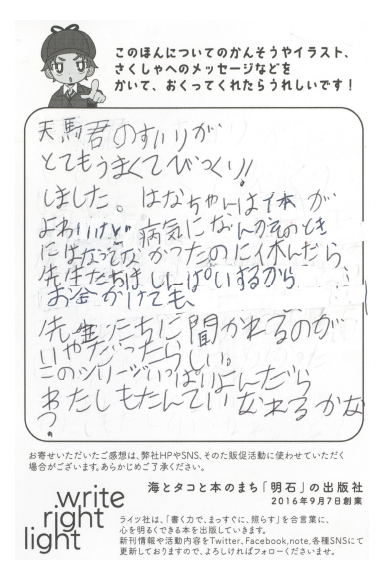 このほんについてのかんそうやイラスト、
さくしゃへのメッセージなどを
かいて、おくってくれたらうれしいです！
天馬君のすいりが
とてもうまくてびっくり!
しました。はなちゃんは体が
よわいけど 病気になんかそのとき
にはなってなかったのに休んだら
先生たちはしんぱいするから
お金かけても、
先生たちに聞かれるのが
いやだったらしい。
このシリーズいっぱいよんだら
わたしもたんてい なれるかな
?
お寄せいただいたご感想は、弊社HPやSNS、そのた販促活動に使わせていただく
場合がございます。あらかじめご了承ください。
write
right
light
海とタコと本のまち「明石」の出版社
2016年9月7日創業
ライツ社は、「書く力で、まっすぐに、照らす」を合言葉に、
心を明るくできる本を出版していきます。
新刊情報や活動内容をTwitter、Facebook、note、各種SNSにて
更新しておりますので、よろしければフォローくださいませ。